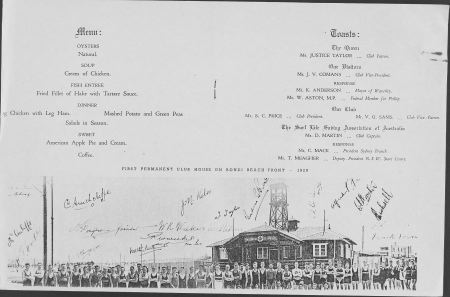 Menu:
OYSTERS
Natural.
SOUP
Cream of Chicken.
FISH ENTREE
Fried Fillet of Hake with Tartare Sauce.
DINNER
Chicken with Leg Ham. Mashed Potato and Green Peas
Salads in Season.
SWEET
American Apple Pie and Cream.
Coffee.
Toasts:
The Queen
Mr. JUSTICE TAYLOR ... Club Patron.
Our Visitors
Mr. J. V. COMANS ... Club Vice-President.
RESPONSE
Mr. K. ANDERSON ... Mayor of Waverley.
Mr. W. ASTON, M.P. ... Federal Member for Phillip.
Our Club
Mr. S. C. PAIGE ... Club President. Mr. V. G. SANS ... Club Vice Patron.
The Surf Life Saving Association of Australia
Mr. D. MARTIN ... Club Captain.
RESPONSE
Mr. C. MACE ... President Sydney Branch.
Mr. T. MEAGHER ... Deputy President N.S.W. State Centre.
FIRST PERMANENT CLUB HOUSE ON BONDI BEACH FRONT -